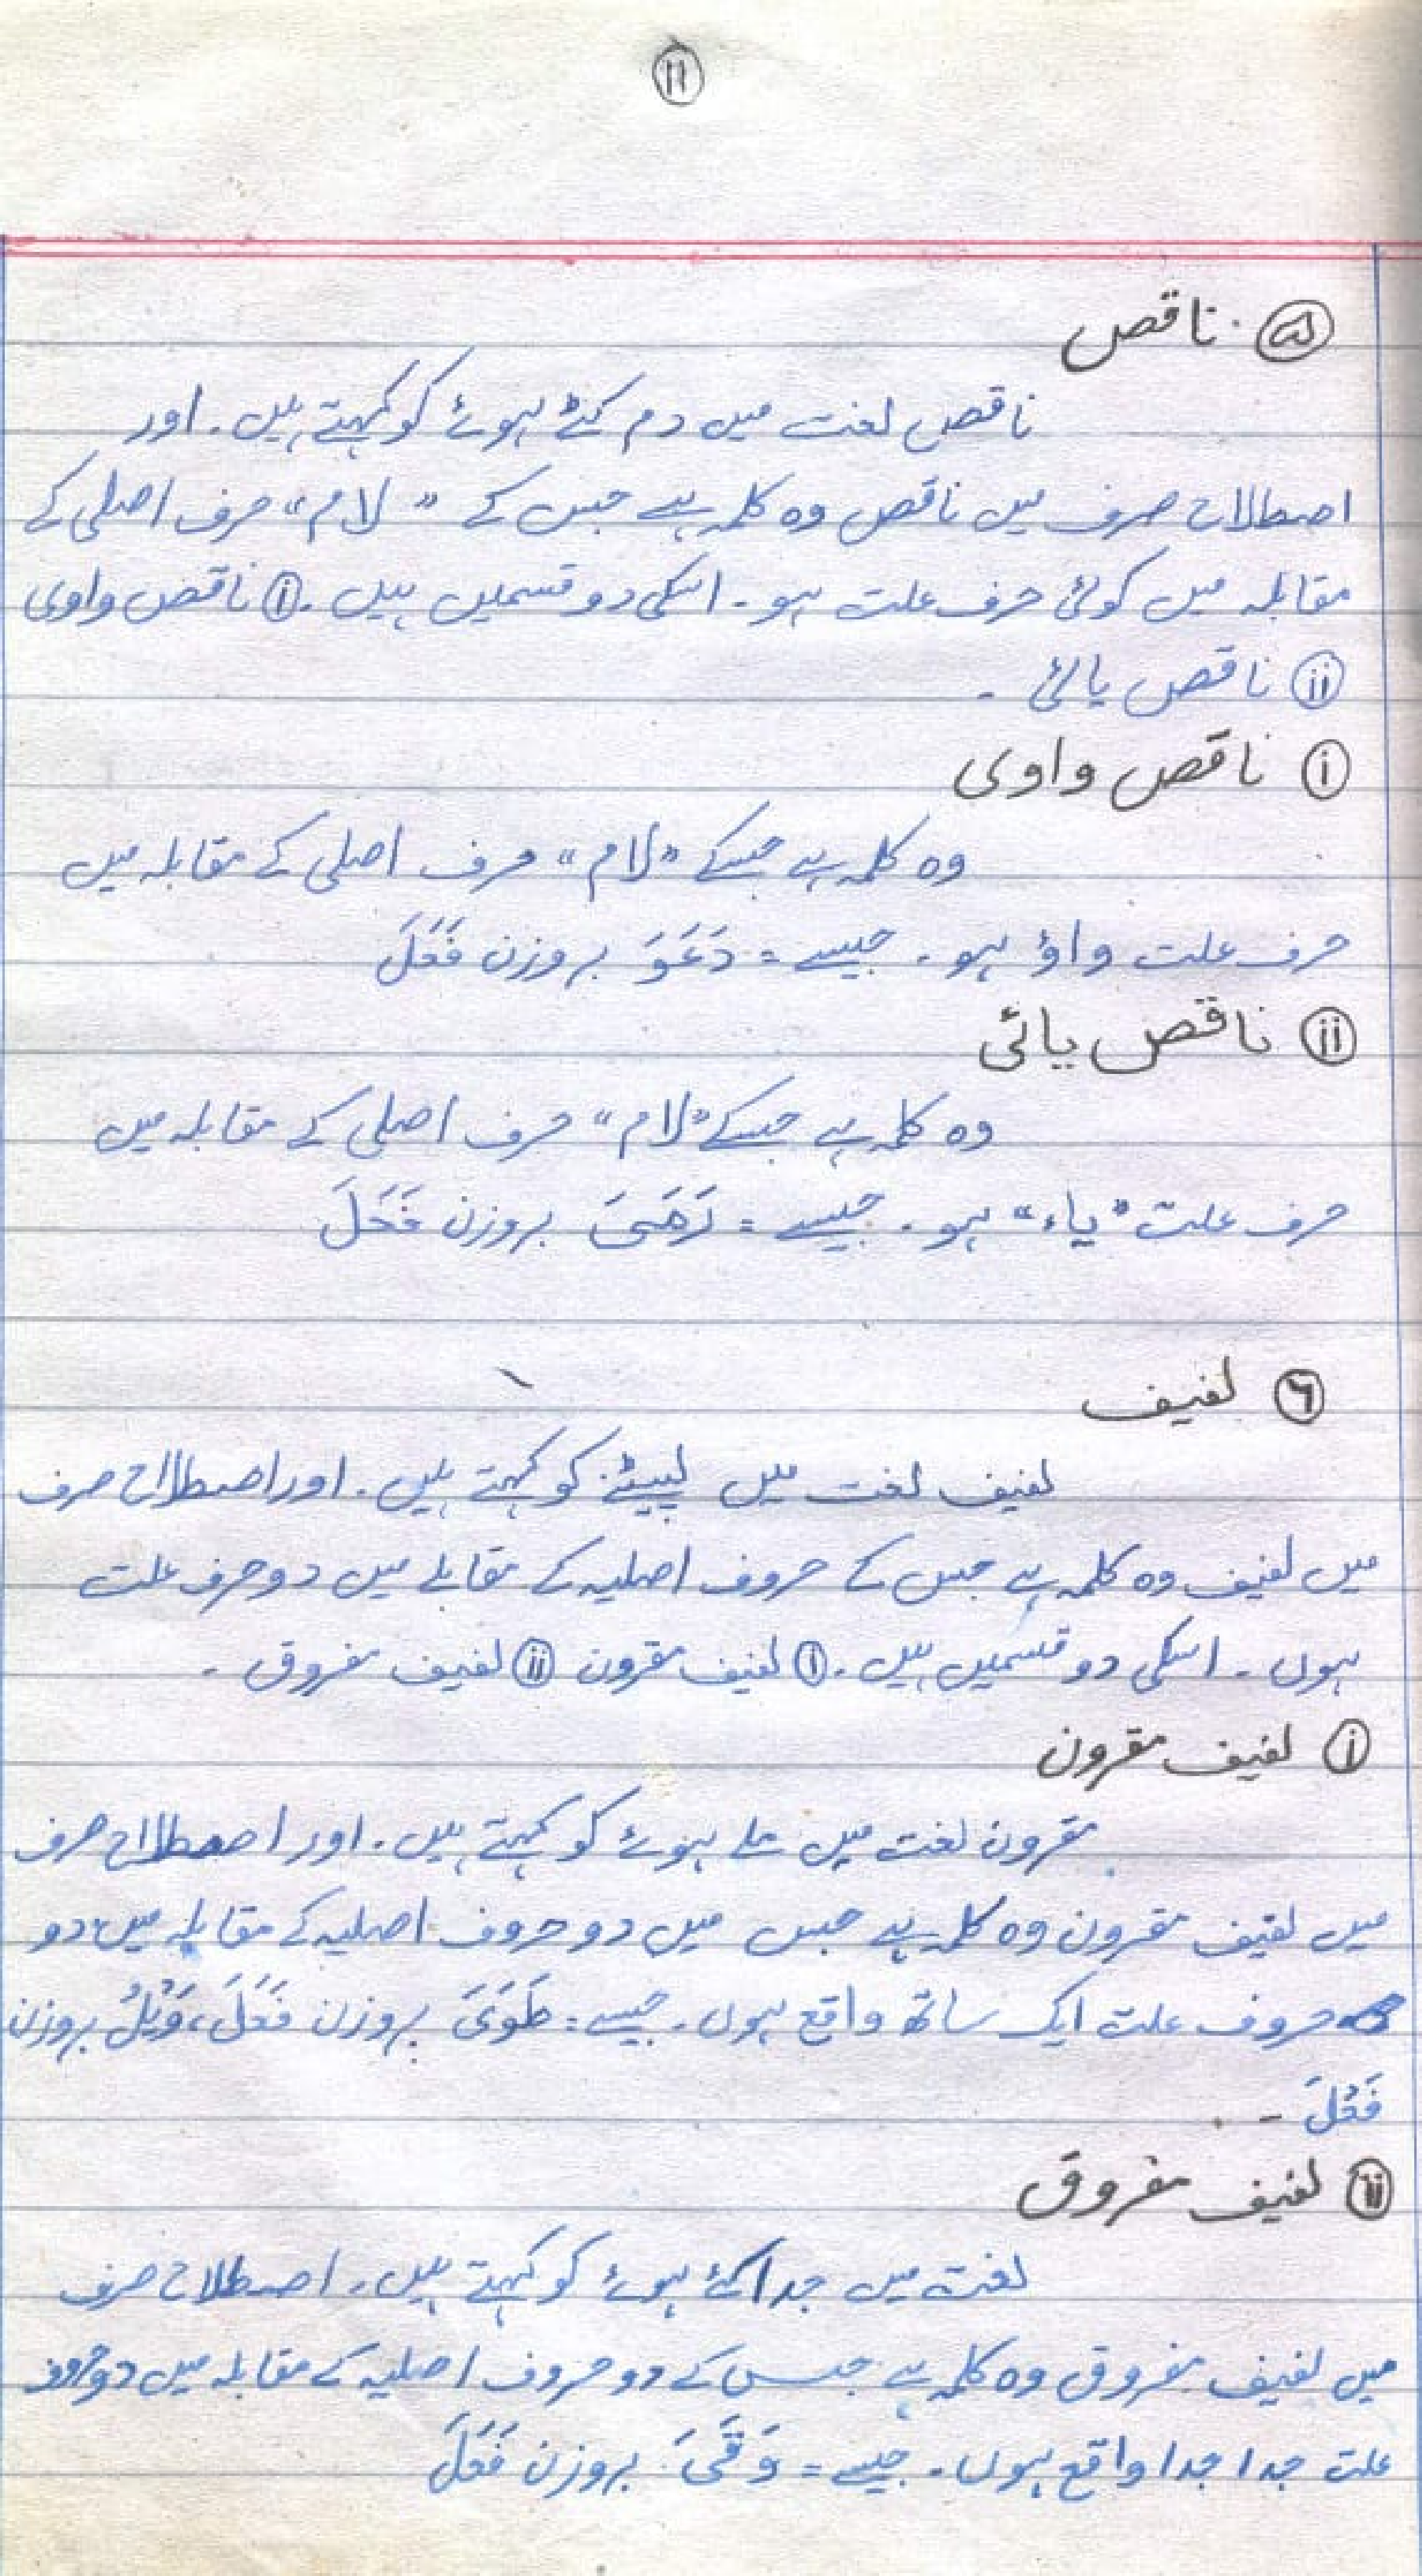 ۱۱
۵ ۔ ناقص
ناقص لغت میں دم کٹے ہوئے کو کہتے ہیں ۔ اور
اصطلاح صرف میں ناقص وہ کلمہ ہے جس کے " لام " حرف اصلی کے
مقابلہ میں کوئی حرف علت ہو ۔ اسکی دو قسمیں ہیں ۔ i ناقص واوی
ii ناقص یائی ۔
i ناقص واوی
وہ کلمہ ہے جسکے " لام " حرف اصلی کے مقابلہ میں
حرف علت واؤ ہو ۔ جیسے = دَعَوَ بروزن فَعَلَ
ii ناقص یائی
وہ کلمہ ہے جسکے " لام " حرف اصلی کے مقابلہ میں
حرف علت " یاء " ہو ۔ جیسے = رَمَیَ بروزن فَعَلَ
۶ لفیف
لفیف لغت میں لپیٹے کو کہتے ہیں ۔ اور اصطلاح صرف
میں لفیف وہ کلمہ ہے جس کے حروف اصلیہ کے مقابلے میں دو حرف علت
ہوں ۔ اسکی دو قسمیں ہیں ۔ i لفیف مقرون ii لفیف مفروق ۔
i لفیف مقرون
مقرون لغت میں ملے ہوئے کو کہتے ہیں ۔ اور اصطلاح صرف
میں لفیف مقرون وہ کلمہ ہے جس میں دو حروف اصلیہ کے مقابلہ میں دو
حروف علت ایک ساتھ واقع ہوں ۔ جیسے = طَوَیَ بروزن فَعَلَ ، وَیْلُ بروزن
فَعْلَ ۔
ii لفیف مفروق
لغت میں جدا کئے ہوئے کو کہتے ہیں ۔ اصطلاح صرف
میں لفیف مفروق وہ کلمہ ہے جس کے دو حروف اصلیہ کے مقابلہ میں دو حروف
علت جدا جدا واقع ہوں ۔ جیسے = وَقَیَ بروزن فَعَلَ